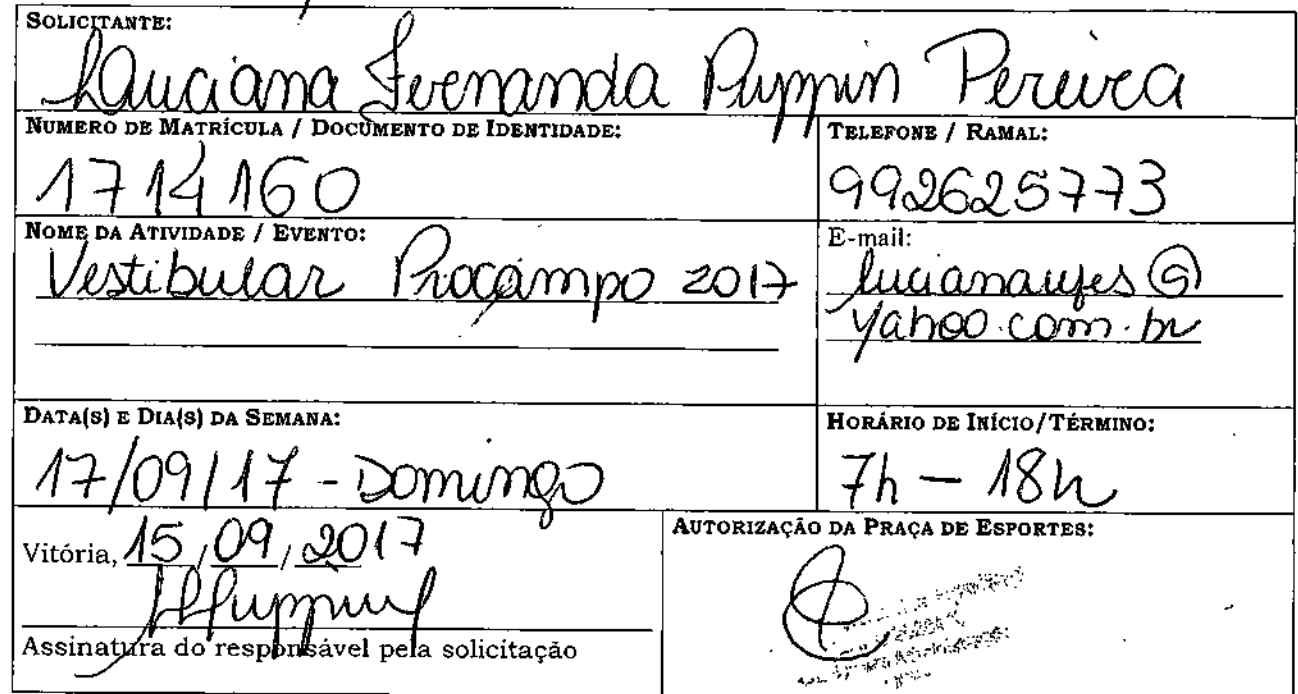 SOLICITANTE:
Luciana Fernanda Puppin Pereira
NUMERO DE MATRÍCULA / DOCUMENTO DE IDENTIDADE:
1714160
TELEFONE / RAMAL:
992625773
NOME DA ATIVIDADE / EVENTO:
Vestibular Procampo 2017
E-mail:
lucianaufes@
yahoo.com.br
DATA(S) E DIA(S) DA SEMANA:
17/09/17 - Domingo
HORÁRIO DE INÍCIO/TÉRMINO:
7h - 18h
Vitória, 15/09/2017
Assinatura do responsável pela solicitação
AUTORIZAÇÃO DA PRAÇA DE ESPORTES: